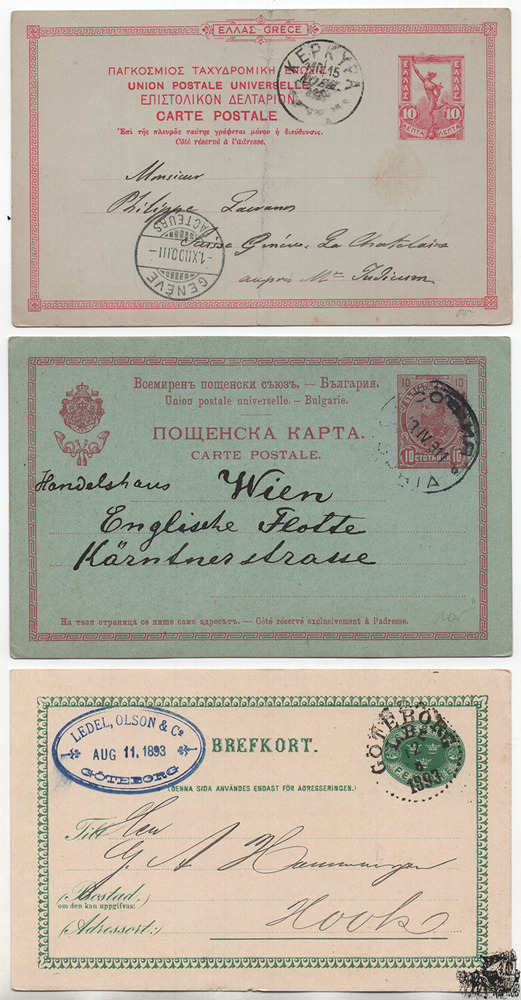 ΕΛΛΑΣ GRECE
ΠΑΓΚΟΣΜΙΟΣ ΤΑΧΥΔΡΟΜΙΚΗ
UNION POSTALE UNIVERSELLE
ΕΠΙΣΤΟΛΙΚΟΝ ΔΕΛΤΑΡΙΟΝ
CARTE POSTALE
Ἐπὶ τῆς πλευρᾶς ταύτης γράφεται μόνον ἡ διεύθυνσις.
Côté réservé à l'adresse.
ΚΕΡΚΥΡΑ
ΕΛΛΑΣ ΕΛΛΑΣ
10 10
ΛΕΠΤΑ ΛΕΠΤΑ
Monsieur
Philippe
Suisse Genève La Chatelaine
auprès Mr
GENÈVE
1.XII.00.III
FACTEURS
Всемиренъ пощенски съюзъ. — България.
Union postale universelle. — Bulgarie.
ПОЩЕНСКА КАРТА.
CARTE POSTALE.
10 10
10 СТОТИНКИ 10
СОФИЯ
SOPHIA
Handelshaus Wien
Englische Flotte
Kärntnerstrasse
На тази страница се пише само адресътъ. — Côté réservé exclusivement à l'adresse.
LEDEL, OLSON & Co
AUG 11.1893
GÖTEBORG
BREFKORT.
(DENNA SIDA ANVÄNDES ENDAST FÖR ADRESSERINGEN.)
GÖTEBORG
LBR
1893
Till Herr
G. A
(Bostad,
om den kan uppgifvas:)
(Adressort:) Hook